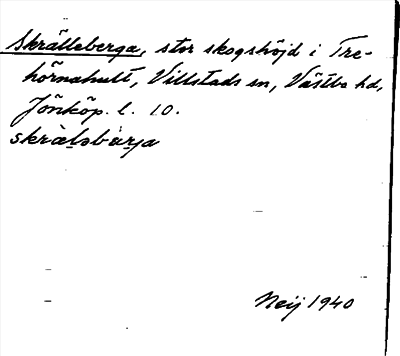 Skrälleberga, stor skogshöjd i Tre-
hörnahult, Villstads sn, Västbo hd,
Jönköp. l. 10.
skrälsbärja
Neij 1940